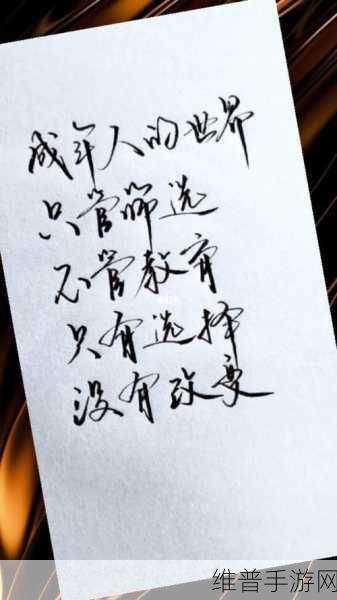 成年人的世界
只管筛选
不管教育
只有选择
没有改变
维普手游网